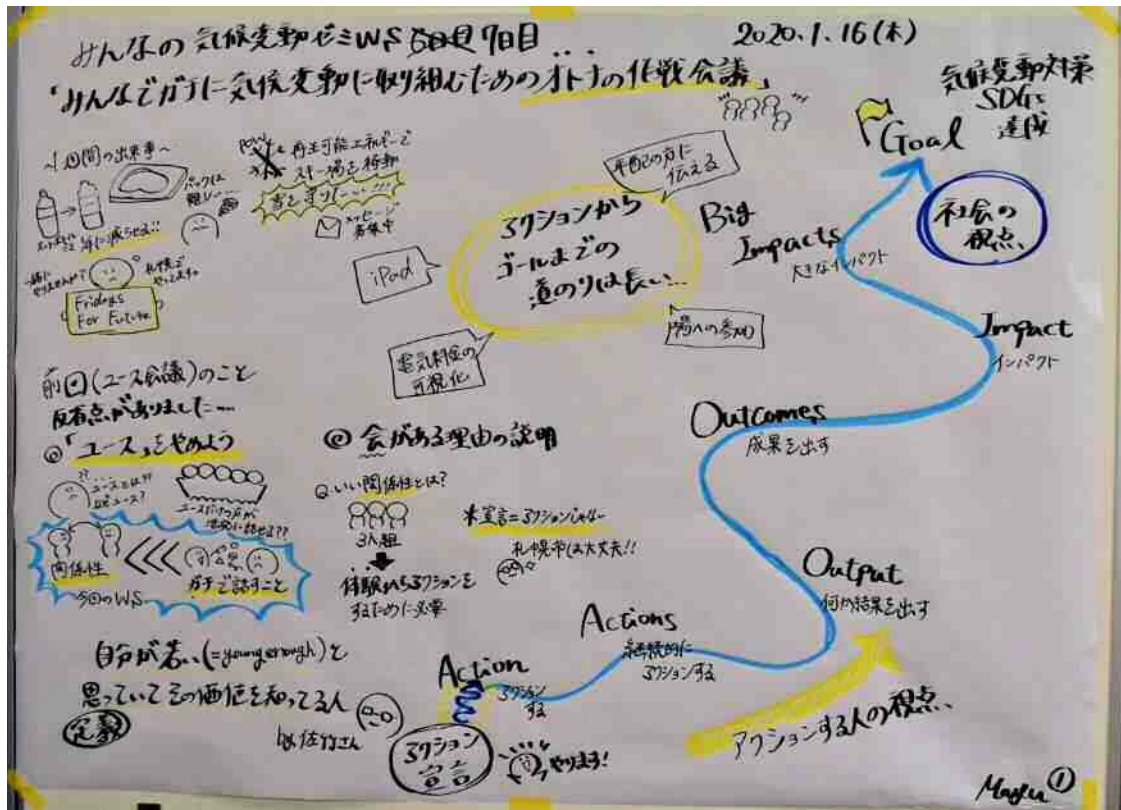 みんなの気候変動ゼミWS 7日目...
2020.1.16(木)
「みんなでガチに気候変動に取り組むためのオトナの作戦会議」
気候変動対策
SDGs
達成
Goal
社会の
視点
~1週間の出来事~
再生可能エネルギーで
スキー場を稼動
雪を守りたい...!!!
メッセージ
募集中
パックは
難しい...
に減らせる!!
一緒に
やりませんか?
札幌で
やってます。
Fridays
For Future
年配の方に
伝える
アクションから
ゴールまでの
道のりは長い...
iPad
電気料金の
可視化
場への参加
Big
Impacts
大きなインパクト
Impact
インパクト
Outcomes
成果を出す
Output
何か結果を出す
Actions
継続的に
アクションする
Action
アクション
する
アクション
宣言
やります!
アクションする人の視点
前回(ユース会議)のこと
反省点がありました...
◎「ユース」をやめよう
ユースとは??
なぜユース?
ユースだけの方が
活発に話せる??
関係性
<<<
ガチで話すこと
今回のWS
◎会がある理由の説明
Q.いい関係性とは?
3人組
体験からアクションを
するために必要
*宣言=アクションじゃない
札幌市は大丈夫!!
自分が若い(=young enough)と
思っていてその価値を知ってる人
定義
by.佐竹さん
①